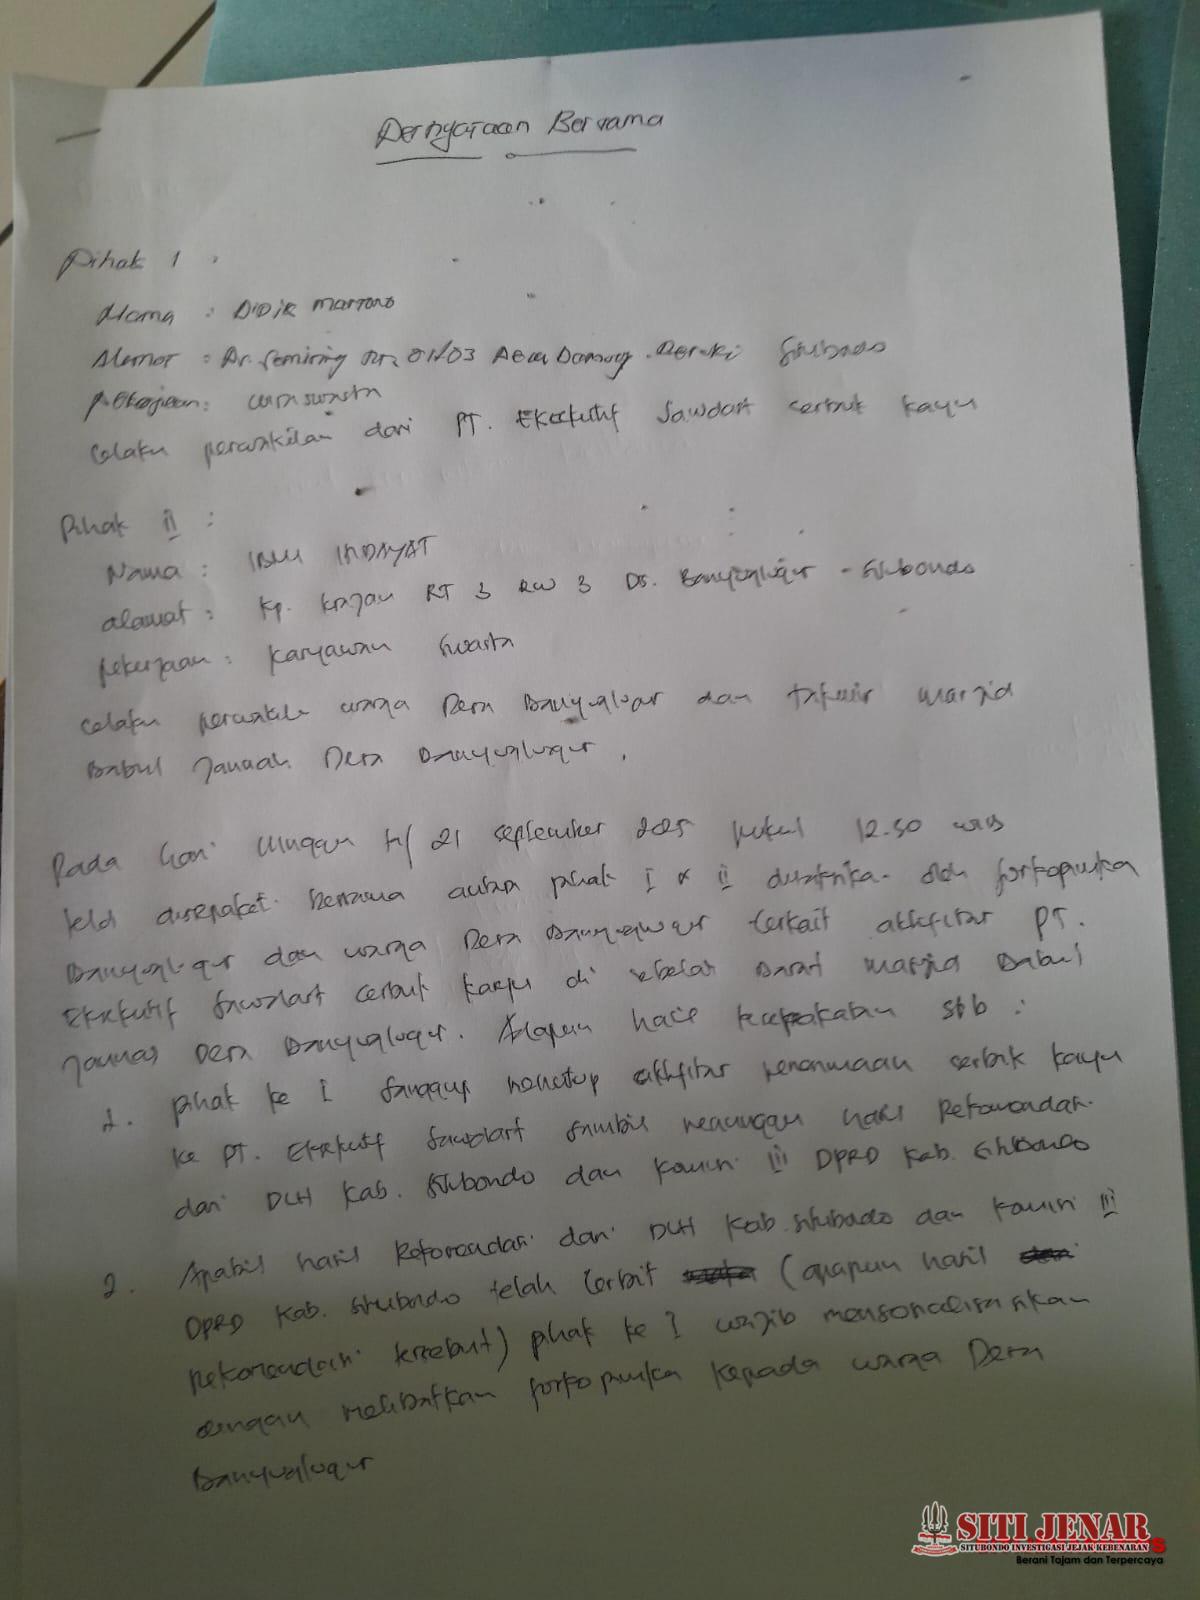 Pernyataan Bersama
Pihak 1 :
Nama : Didik Martono
Alamat : RT 01/03 Desa Demung Besuki Situbondo
Pekerjaan : wiraswasta
Selaku perwakilan dari PT. Eksekutif Sawdart serbuk kayu
Pihak II :
Nama : IBNU HIDAYAT
alamat : Kp. Krajan RT 3 RW 3 Ds. Banyuglugur - Situbondo
pekerjaan : Karyawan Swasta
selaku perwakilan warga Desa Banyuglugur dan takmir Masjid
Babul Jannah Desa Banyuglugur.
Pada hari Minggu tgl 21 september 2025 pukul 12.50 WIB
telah disepakati bersama antara pihak I & II oleh forkopimka
Banyuglugur dan warga Desa Banyuglugur terkait aktifitas PT.
Eksekutif Sawdart serbuk kayu di sebelah Barat Masjid Babul
Jannah Desa Banyuglugur. Adapun hasil kesepakatan sbb :
1. pihak ke I sanggup menutup aktifitas penerimaan serbuk kayu
ke PT. Eksekutif Sawdart sambil menunggu hasil Rekomendasi
dari DLH Kab. Situbondo dan Komisi III DPRD Kab. Situbondo
2. Apabila hasil Rekomendasi dari DLH Kab. Situbondo dan Komisi III
DPRD Kab. Situbondo telah terbit (apapun hasil
rekomendasi tersebut) pihak ke I wajib mensosialisasikan
dengan melibatkan forkopimka kepada warga Desa
Banyuglugur
SITI JENAR
SITUBONDO INVESTIGASI JEJAK KEBENARAN
Berani Tajam dan Terpercaya